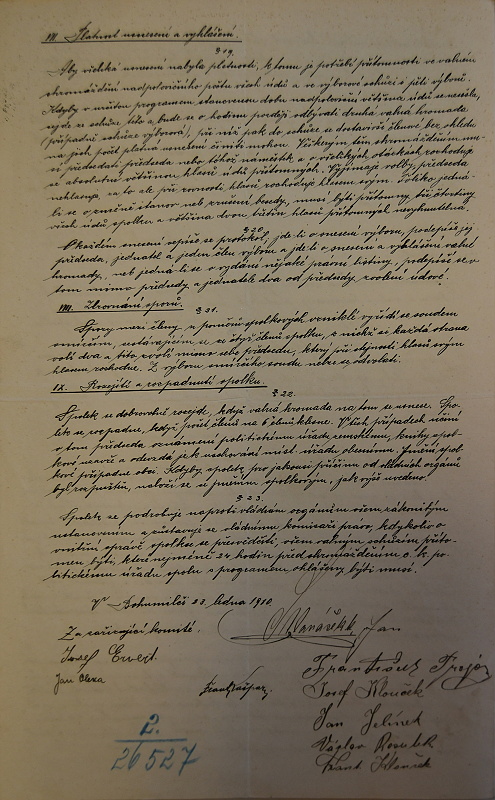 VII. Platnost usnesení a vyhlášení.
§ 19.
Aby veškerá usnesení nabyla platnosti, k tomu je potřebí přítomnosti ve valném
shromáždění nadpolovičního počtu všech údů a ve výborové schůzi pěti výborů.
Kdyby v určitou programem stanovenou dobu nadpoloviční většina údů se nesešla,
sejde se schůze této a bude se o hodinu později odbývati druhá valná hromada
(případně schůze výborová), při níž pak do schůze se dostavivší členové bez ohledu
na jich počet platná usnesení činiti mohou. Veškerým těm shromážděním
předsedati předseda nebo téhož náměstek a o veškerých otázkách rozhoduje
se absolutní většinou hlasů údů přítomných. Vyjímaje volby, předseda
nehlasuje, za to ale při rovnosti hlasů rozhoduje hlasem svým. Jedná
li se o změně stanov neb zrušení besedy, musí býti přítomny tři čtvrtiny
všech údů spolku a většina dvou třetin hlasů přítomných nevyhnutelna.
§ 20.
O každém usnesení sepíše se protokol; jde-li o usnesení výboru, podepíše jej
předseda, jednatel a jeden člen výboru a jde-li o usnesení a vyhlášení valné
hromady, neb jedná-li se o vydání nějaké právní listiny, podepíše se v
tom mimo předsedy a jednatele dva od předsedy zvolení údové.
VIII. Urovnání sporů.
§ 21.
Spory mezi členy, z poměrů spolkových vzniklé vyřídí se soudem
smírčím, sestávajícím se ze čtyř členů spolku, z nichž si každá strana
volí dva a tito zvolí mimo sebe předsedu, který při stejnosti hlasů svým
hlasem rozhodne. Z výroku smírčího soudu nelze se odvolati.
IX. Rozejití a rozpadnutí spolku.
§ 22.
Spolek se dobrovolně rozejde, když valná hromada na tom se usnese. Spo-
lek se rozpadne, kdyby počet členů na 6 členů klesne. V obou případech učiní
o tom předseda oznámení politickému úřadu zemskému, knihy spol-
kové uzavře a odevzdá je k uschování míst. úřadu obecnímu. Jmění spol-
kové připadne obci. Kdyby spolek z jakousi příčinu od vládních orgánů
byl rozpuštěn, naloží se s jměním spolkovým, jak výše uvedeno.
§ 23.
Spolek se podrobuje naproti vládním orgánům všem zákonitým
ustanovením a zůstavuje se vládnímu komisaři právo, kdykoliv o
vnitřní správě spolku se přesvědčiti, všem valným schůzím příto-
men býti, které nejméně 24 hodin před shromážděním c. k. po-
litickému úřadu spolu s programem ohlášeny býti musí.
V Bohumilči 23. ledna 1910.
Za zařizující komité.
Vaněček Jan
Josef Ervert
František Trojan
Jan Olexa
Josef Klouček
Jan Jelínek
Václav
Frant.
2.
26527